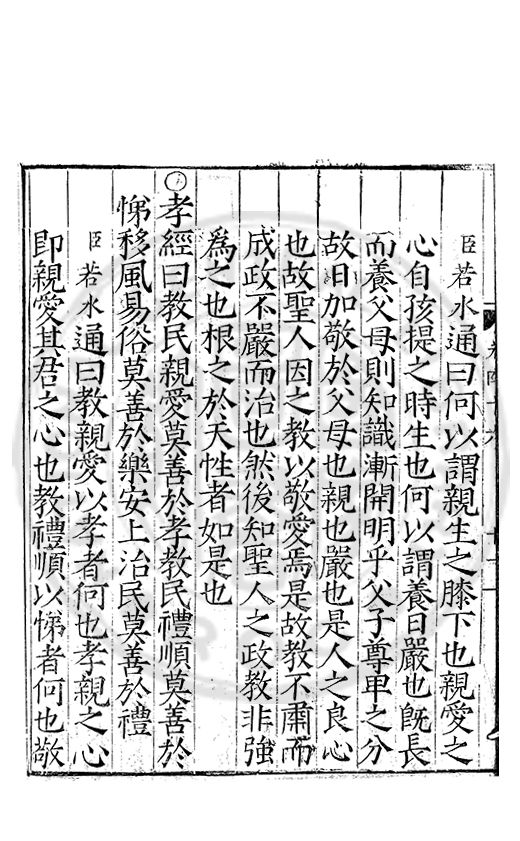 臣若水通曰何以謂親生之膝下也親愛之
心自孩提之時生也何以謂養日嚴也旣長
而養父母則知識漸開明乎父子尊卑之分
故日加敬於父母也親也嚴也是人之良心
也故聖人因之教以敬愛焉是故教不肅而
成政不嚴而治也然後知聖人之政教非強
爲之也根之於天性者如是也
○孝經曰教民親愛莫善於孝教民禮順莫善於
悌移風易俗莫善於樂安上治民莫善於禮
臣若水通曰教親愛以孝者何也孝親之心
即親愛其君之心也教禮順以悌者何也敬